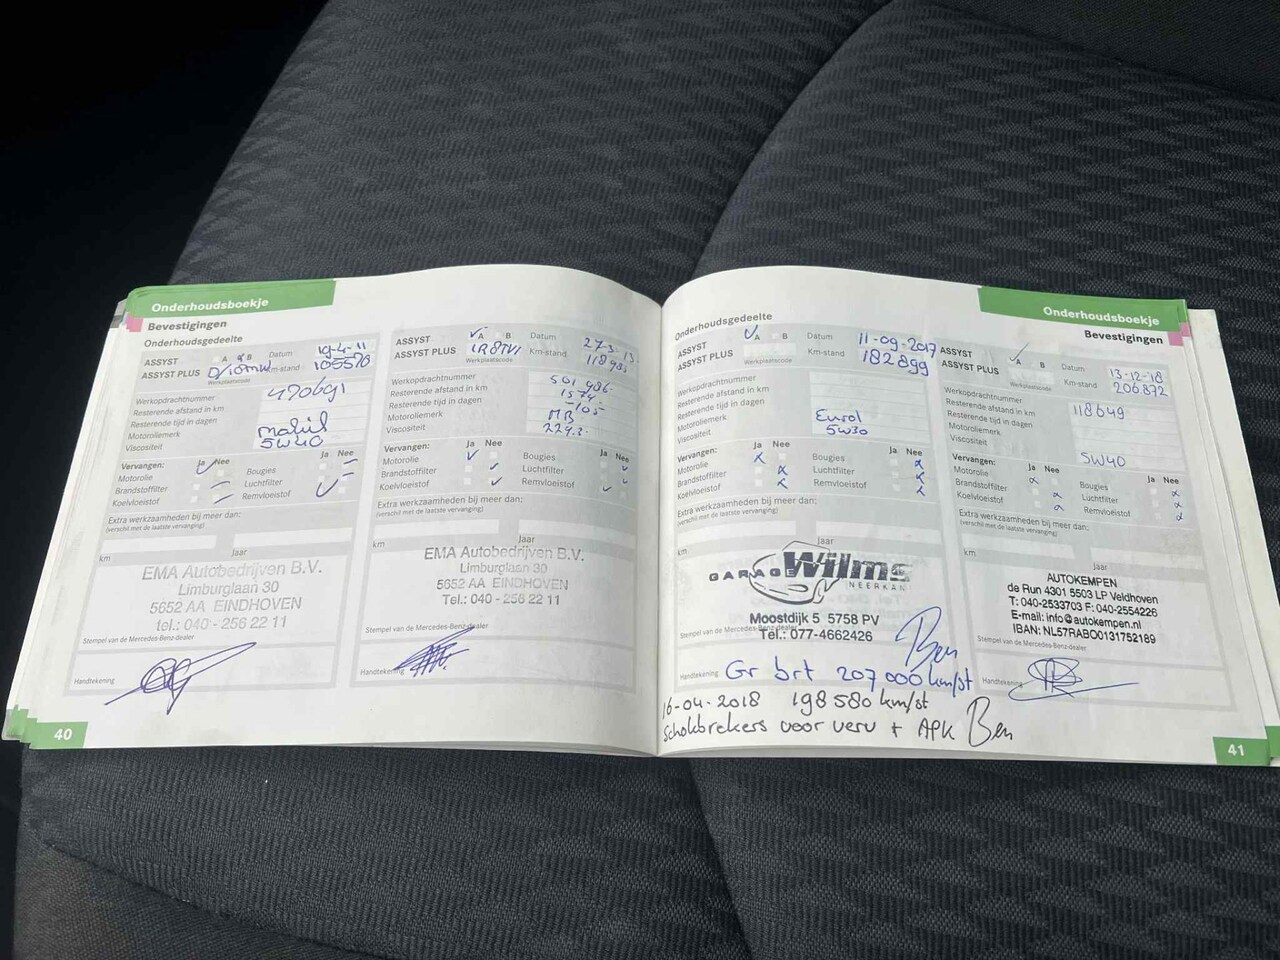 Onderhoudsboekje
Bevestigingen
Onderhoudsgedeelte
ASSYST
A B
Datum
19-4-11
ASSYST PLUS
Werkplaatscode
Km-stand
105578
Werkopdrachtnummer
470691
Resterende afstand in km
Resterende tijd in dagen
Motoroliemerk
Mobil
Viscositeit
5W40
Vervangen:
Ja Nee
Ja Nee
Motorolie
Bougies
Brandstoffilter
Luchtfilter
Koelvloeistof
Remvloeistof
Extra werkzaamheden bij meer dan:
(verschil met de laatste vervanging)
km
Jaar
EMA Autobedrijven B.V.
Limburglaan 30
5652 AA EINDHOVEN
tel.: 040 - 256 22 11
Stempel van de Mercedes-Benz-dealer
Handtekening
40
ASSYST
A B
Datum
27-3-13
ASSYST PLUS
Werkplaatscode
Km-stand
118985
Werkopdrachtnummer
501486
Resterende afstand in km
1574
Resterende tijd in dagen
-105
Motoroliemerk
MB
Viscositeit
229.2
Vervangen:
Ja Nee
Ja Nee
Motorolie
Bougies
Brandstoffilter
Luchtfilter
Koelvloeistof
Remvloeistof
Extra werkzaamheden bij meer dan:
(verschil met de laatste vervanging)
km
Jaar
EMA Autobedrijven B.V.
Limburglaan 30
5652 AA EINDHOVEN
Tel.: 040 - 256 22 11
Stempel van de Mercedes-Benz-dealer
Handtekening
Onderhoudsboekje
Bevestigingen
Onderhoudsgedeelte
ASSYST
A B
Datum
11-09-2017
ASSYST PLUS
Werkplaatscode
Km-stand
182899
Werkopdrachtnummer
Resterende afstand in km
Resterende tijd in dagen
Motoroliemerk
Eurol
Viscositeit
5W30
Vervangen:
Ja Nee
Ja Nee
Motorolie
Bougies
Brandstoffilter
Luchtfilter
Koelvloeistof
Remvloeistof
Extra werkzaamheden bij meer dan:
(verschil met de laatste vervanging)
km
Jaar
GARAGE Wilms
NEERKANT
Moostdijk 5 5758 PV
Tel.: 077-4662426
Stempel van de Mercedes-Benz-dealer
Ben
Handtekening
Gr brt 207000 km/st
16-04-2018 198580 km/st
Schokbrekers voor verv + APK Ben
ASSYST
A B
Datum
13-12-18
ASSYST PLUS
Werkplaatscode
Km-stand
206872
Werkopdrachtnummer
118649
Resterende afstand in km
Resterende tijd in dagen
Motoroliemerk
Viscositeit
5W40
Vervangen:
Ja Nee
Ja Nee
Motorolie
Bougies
Brandstoffilter
Luchtfilter
Koelvloeistof
Remvloeistof
Extra werkzaamheden bij meer dan:
(verschil met de laatste vervanging)
km
Jaar
AUTOKEMPEN
de Run 4301 5503 LP Veldhoven
T: 040-2533703 F: 040-2554226
E-mail: info@autokempen.nl
IBAN: NL57RABO0131752189
Stempel van de Mercedes-Benz-dealer
Handtekening
41